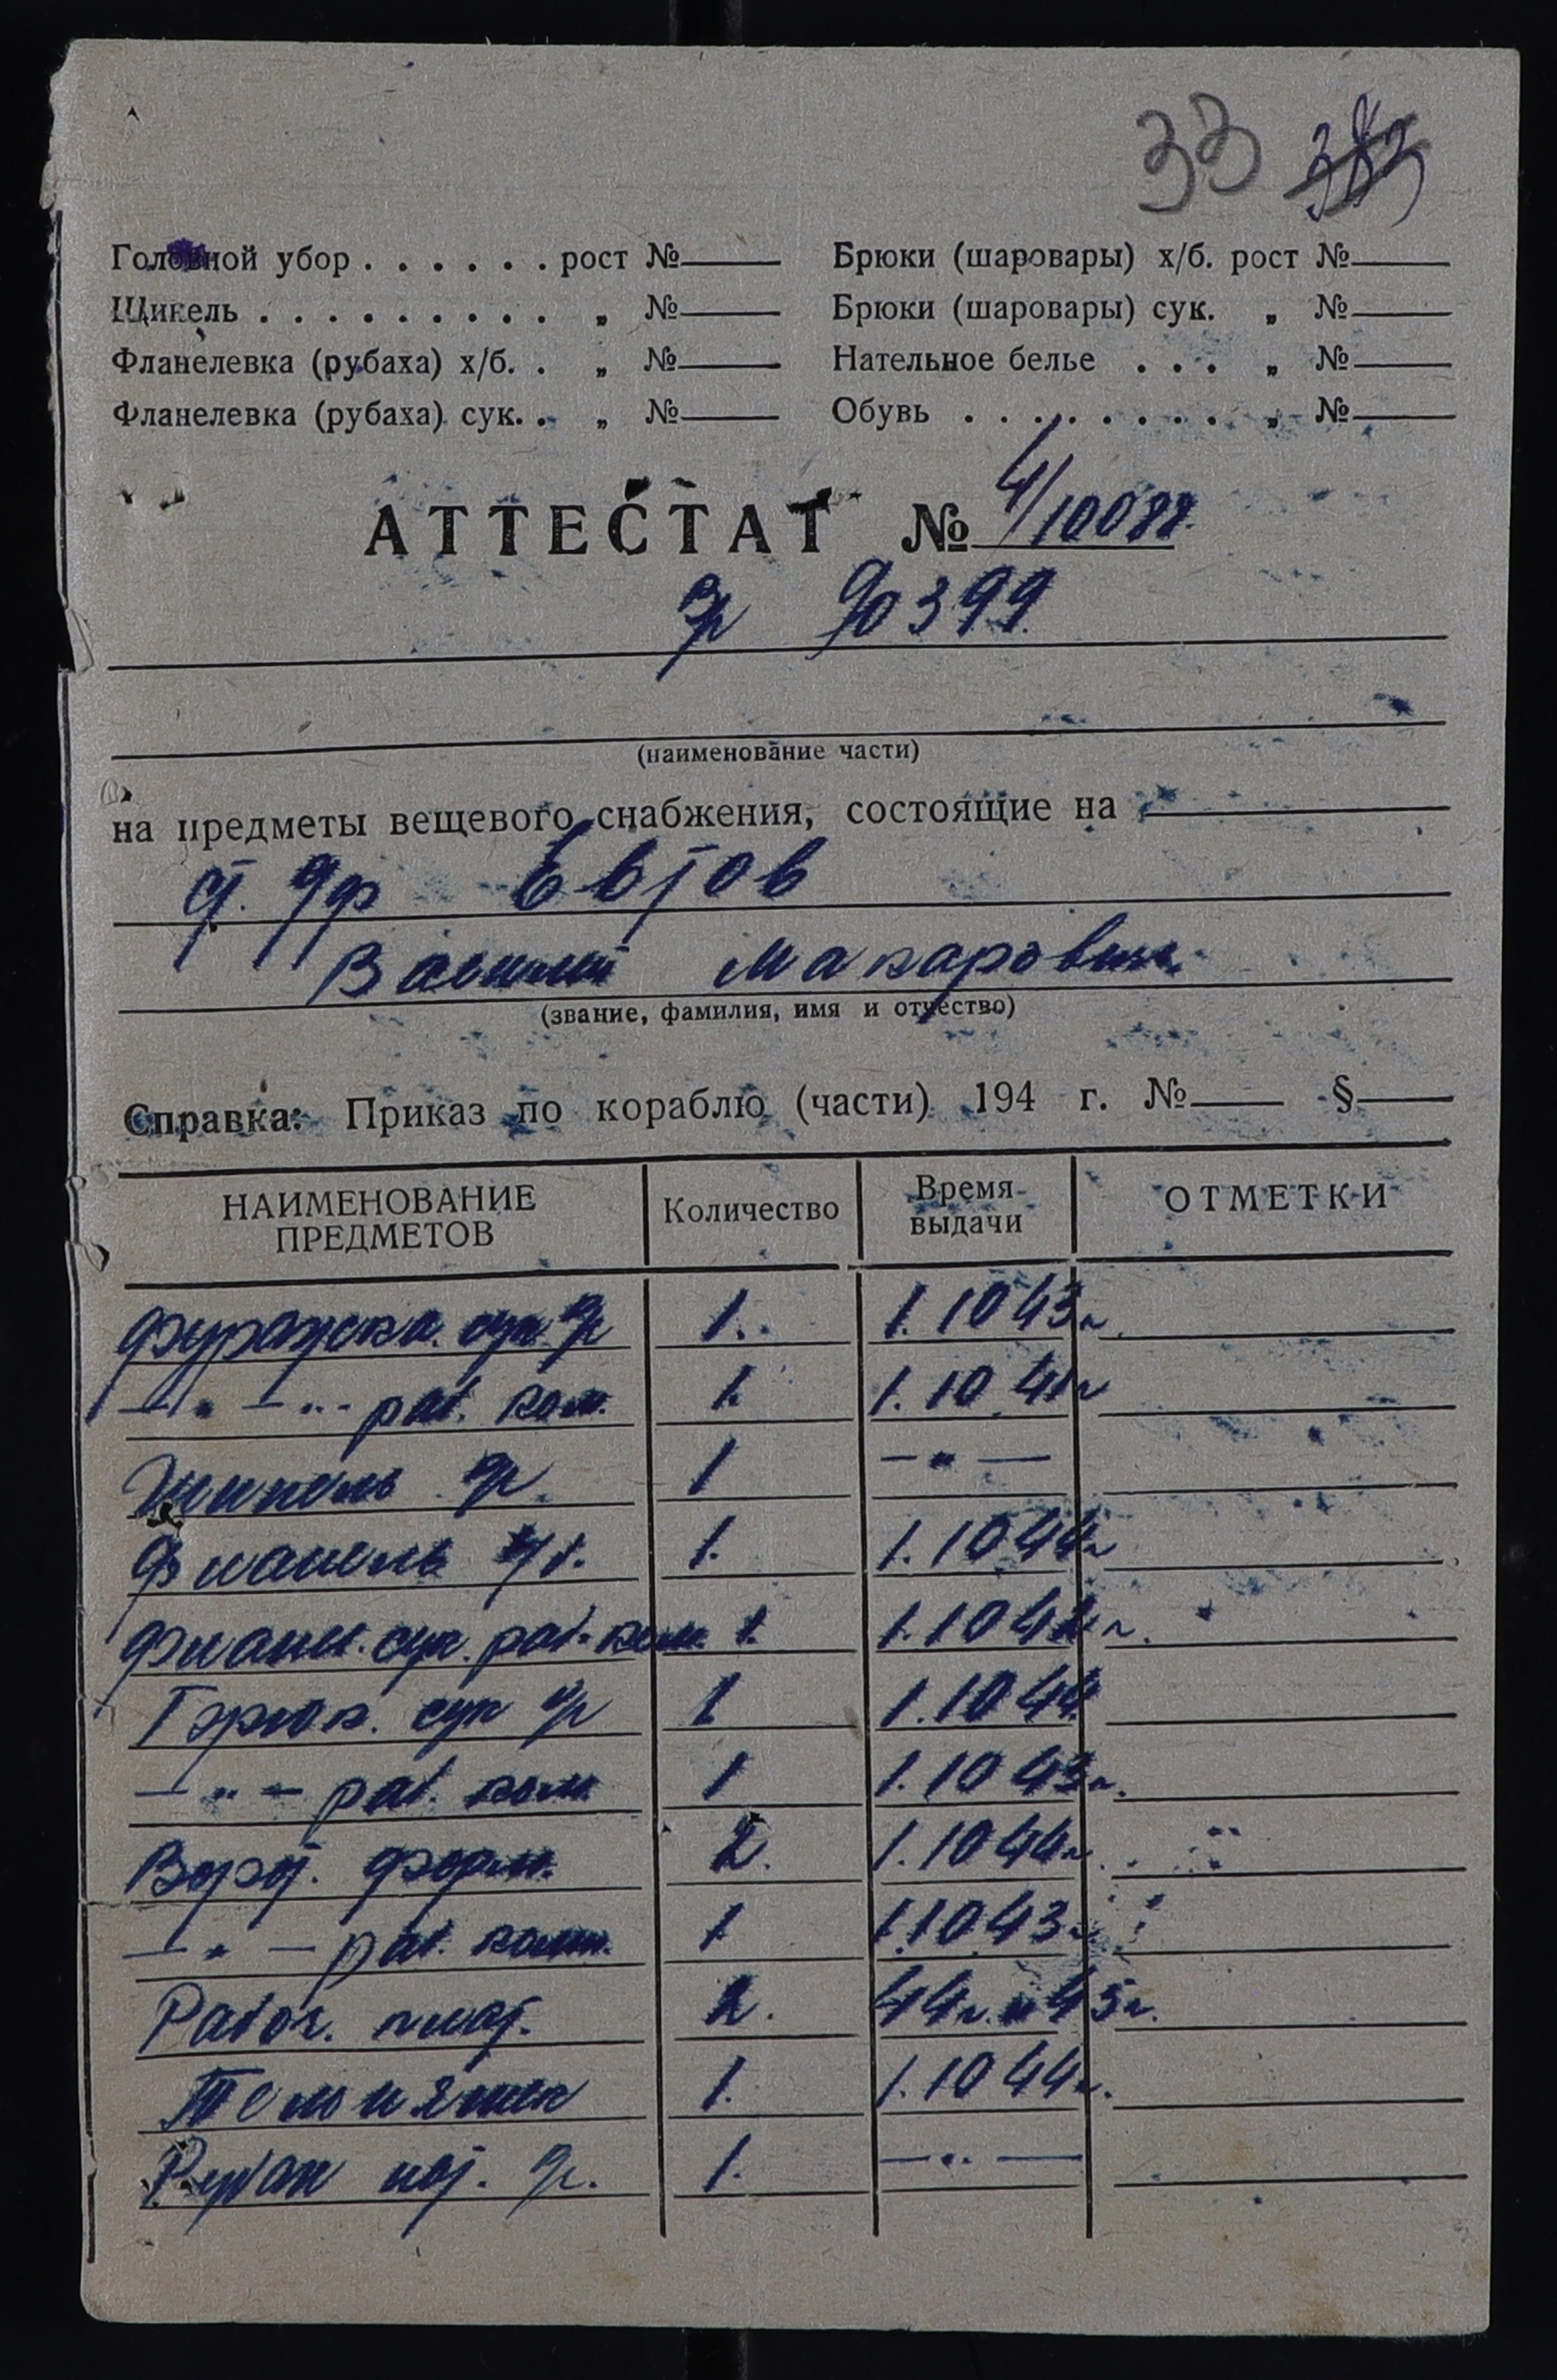 33 383
Головной убор . . . . . . рост № Брюки (шаровары) х/б. рост №
Шинель . . . . . . . . . . „ № Брюки (шаровары) сук. „ №
Фланелевка (рубаха) х/б. . „ № Нательное белье . . . „ №
Фланелевка (рубаха) сук. . „ № Обувь . . . . . . . . „ №
АТТЕСТАТ № 4/10088.
90399.
(наименование части)
на предметы вещевого снабжения, состоящие на
Евтов
Василий Макарович.
(звание, фамилия, имя и отчество)
Справка: Приказ по кораблю (части) 194 г. № §
НАИМЕНОВАНИЕ ПРЕДМЕТОВ Количество Время выдачи ОТМЕТКИ
Фуражка. сук. 1. 1.10 43г.
— „ — „ - раб. ком. 1. 1.10 41г
Шинель 1 — „ —
Фланель 1. 1.10 44г
Фланел. сук. раб. ком. 1. 1.10 44г.
Брюк. сук 1 1.10 44.
— „ — раб. ком. 1 1.10 43г.
Ворот. форм. 2. 1.10 44г.
— „ — раб. комп. 1 1.10.43г.
Рабоч. плат. 2. 44г. и 45г.
Тельняшек 1. 1.10 44г.
Рубах нат. 1. — „ —